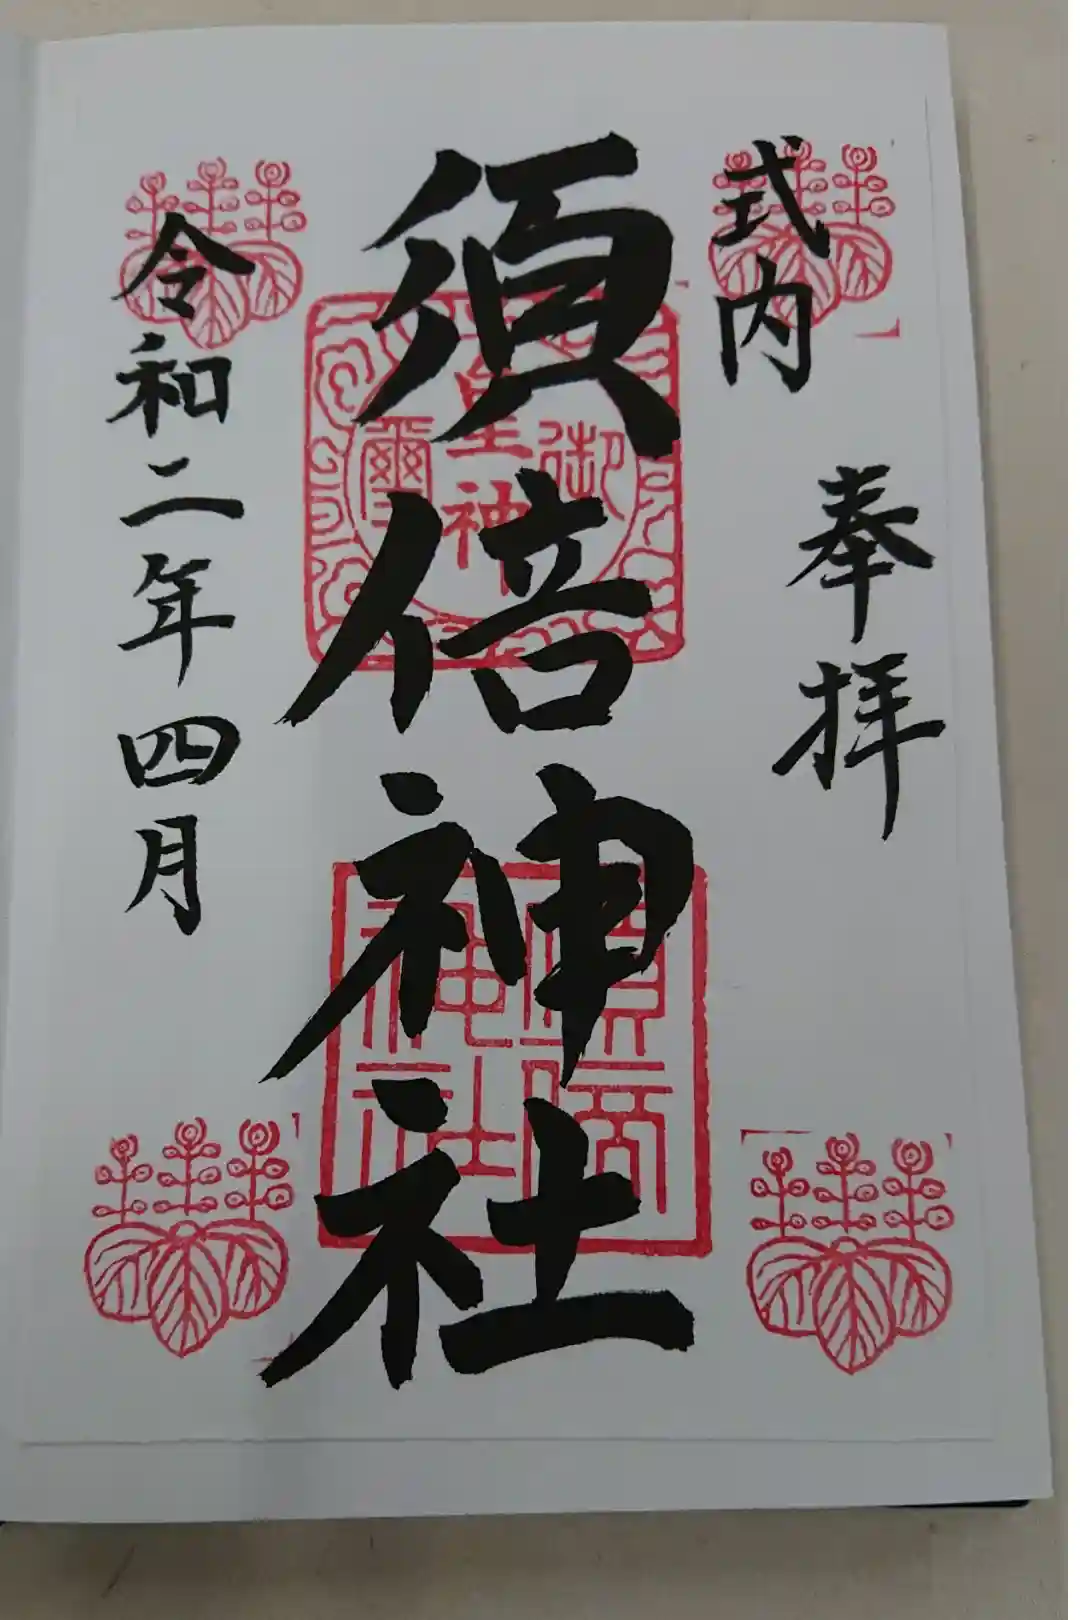 式内
奉拝
須倍神社
令和二年四月
皇神
御
璽
須倍
神社